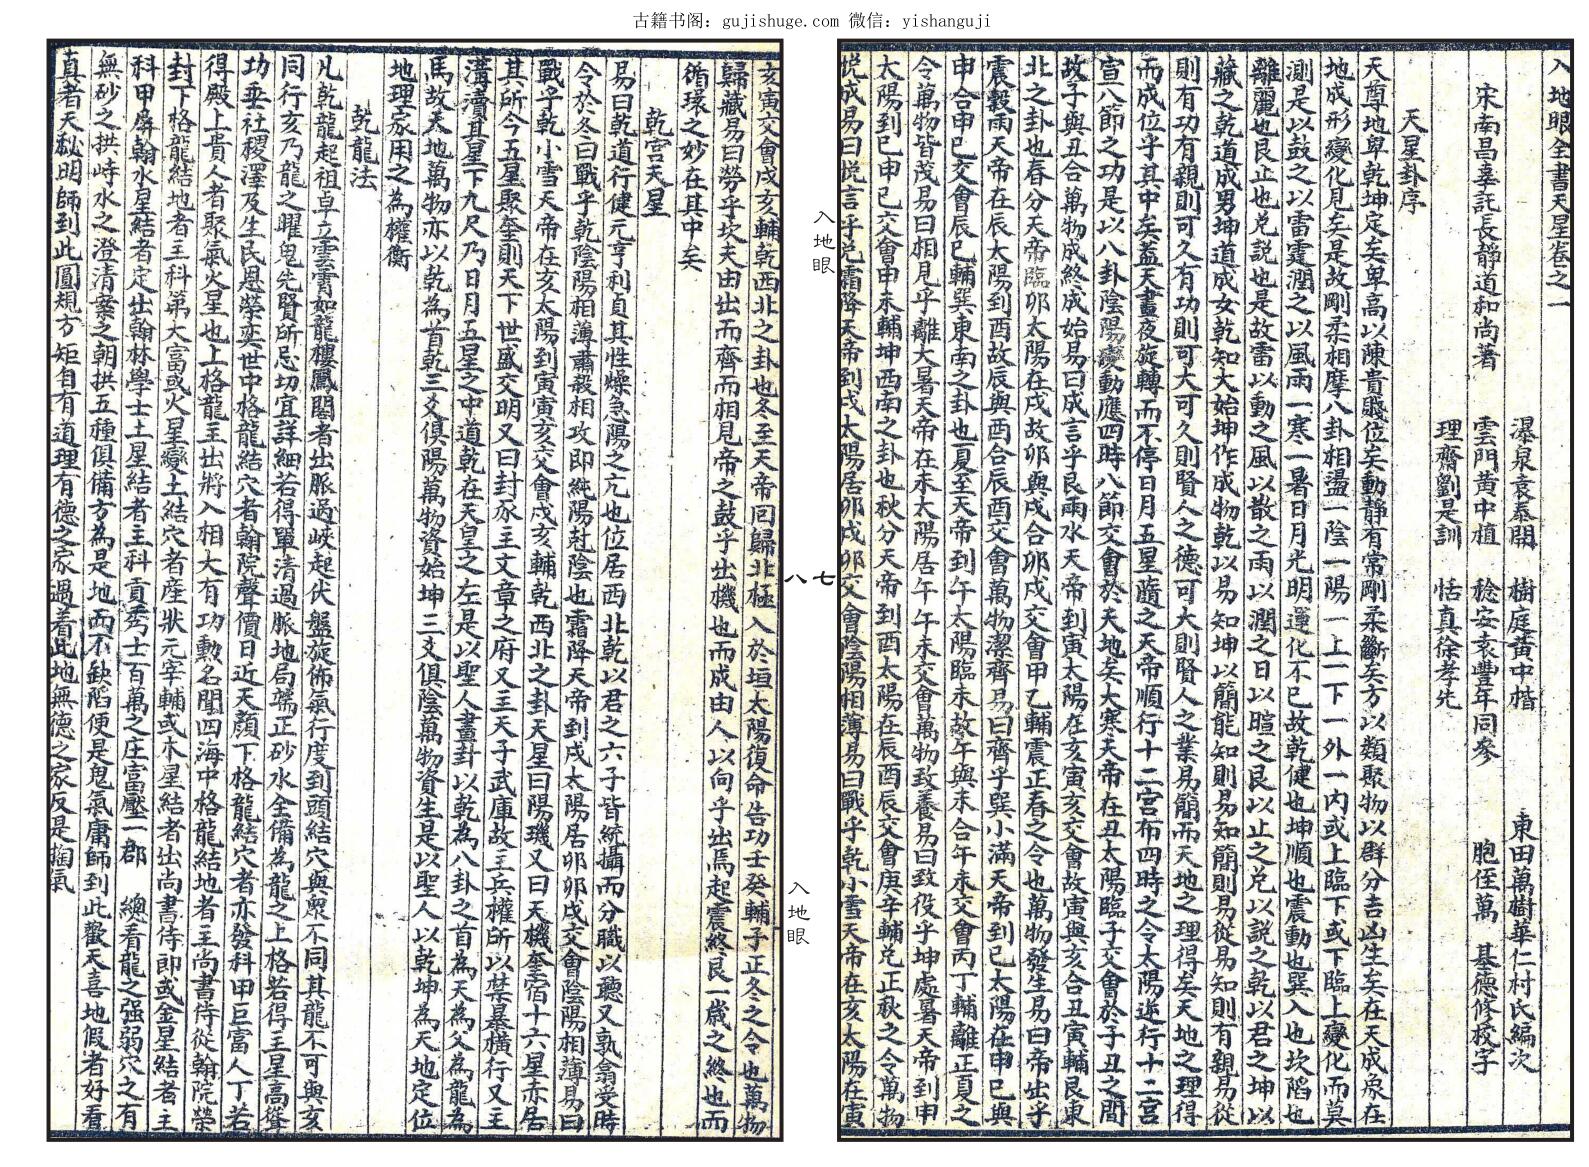 古籍书阁：gujishuge.com 微信：yishanguji
入地眼全書天星卷之一
瀑泉袁泰開 樹庭黃中楷 東田萬樹華仁村氏編次
宋南昌辜託長靜道和尚著 雲門黃中植 稔安袁豐年同參 胞侄萬 基德修校字
理齋劉是訓 恬真徐孝先
天星卦序
天尊地卑乾坤定矣卑高以陳貴賤位矣動靜有常剛柔斷矣方以類聚物以群分吉凶生矣在天成象在
地成形變化見矣是故剛柔相摩八卦相盪一陰一陽一上一下一外一內或上臨下或下臨上變化而莫
測是以鼓之以雷霆潤之以風雨一寒一暑日月光明運化不已故乾健也坤順也震動也巽入也坎陷也
離麗也艮止也兌説也是故雷以動之風以散之雨以潤之日以暄之艮以止之兌以説之乾以君之坤以
藏之乾道成男坤道成女乾知大始坤作成物乾以易知坤以簡能知則易知簡則易從易知則有親易從
則有功有親則可久有功則可大可久則賢人之德可大則賢人之業易簡而天地之理得矣天地之理得
而成位乎其中矣蓋天晝夜旋轉而不停日月五星隨之天帝順行十二宮布四時之令太陽逆行十二宮
宣八節之功是以八卦陰陽變動應四時八節交會於天地矣大寒天帝在丑太陽臨子交會於子丑之間
故子與丑合萬物成終成始易曰成言乎艮雨水天帝到寅太陽在亥寅亥交會故寅與亥合丑寅輔艮東
北之卦也春分天帝臨卯太陽在戌故卯與戌合卯戌交會甲乙輔震正春之令也萬物發生易曰帝出乎
震穀雨天帝在辰太陽到酉故辰與酉合辰酉交會萬物潔齊易曰齊乎巽小滿天帝到巳太陽在申巳與
申合申巳交會辰巳輔巽東南之卦也夏至天帝到午太陽臨未故午與未合午未交會丙丁輔離正夏之
令萬物皆茂易曰相見乎離大暑天帝在未太陽居午午未交會萬物致養易曰致役乎坤處暑天帝到申
太陽到巳申巳交會申未輔坤西南之卦也秋分天帝到酉太陽在辰酉辰交會庚辛輔兌正秋之令萬物
悦成易曰悦言乎兌霜降天帝到戌太陽居卯戌卯交會陰陽相薄易曰戰乎乾小雪天帝在亥太陽在寅
入地眼
七
亥寅交會戌亥輔乾西北之卦也冬至天帝回歸北極入於垣太陽復命告功壬癸輔子正冬之令也萬物
歸藏易曰勞乎坎夫由出而齊而相見帝之鼓乎出機也而成由人以向乎出焉起震終艮一歲之終也而
循環之妙在其中矣
乾宮天星
易曰乾道行健元亨利貞其性燥急陽之亢也位居西北乾以君之六子皆統攝而分職以聽又孰翕受時
令於冬曰戰乎乾陰陽相薄肅殺相攻即純陽尅陰也霜降天帝到戌太陽居卯卯戌交會陰陽相薄易曰
戰乎乾小雪天帝在亥太陽到寅寅亥交會戌亥輔乾西北之卦天星曰陽璣又曰天機奎宿十六星亦居
其所今五星聚奎則天下世盛交明又曰封豕主文章之府又主天子武庫故主兵權所以禁暴橫行又主
溝瀆其星下九尺乃日月五星之中道乾在天皇之左是以聖人畫卦以乾為八卦之首為天為父為龍為
馬故天地萬物亦以乾為首乾三爻俱陽萬物資始坤三爻俱陰萬物資生是以聖人以乾坤為天地定位
地理家用之為權衡
乾龍法
凡乾龍起祖卓立雲霄如龍樓鳳閣者出脈過峽起伏盤旋佈氣行度到頭結穴與眾不同其龍不可與亥
同行亥乃龍之曜鬼先賢所忌切宜詳細若得單清過脈地局端正砂水全備為龍之上格若得主星高聳
功垂社稷澤及生民恩榮奕世中格龍結穴者翰院聲價日近天顏下格龍結穴者亦發科甲巨富人丁若
得殿上貴人者聚氣火星也上格龍主出將入相大有功勳名聞四海中格龍結地者主尚書侍從翰院榮
封下格龍結地者主科第大富或火星變土結穴者産狀元宰輔或木星結者出尚書侍郎或金星結者主
科甲屏翰水星結者定出翰林學士土星結者主科貢秀士百萬之庄富壓一郡 總看龍之强弱穴之有
無砂之拱峙水之澄清案之朝拱五種俱備方為是地而不缺陷便是鬼氣庸師到此歡天喜地假者好看
真者天秘明師到此圓規方矩自有道理有德之家遇着此地無德之家反是掏氣
入地眼
八